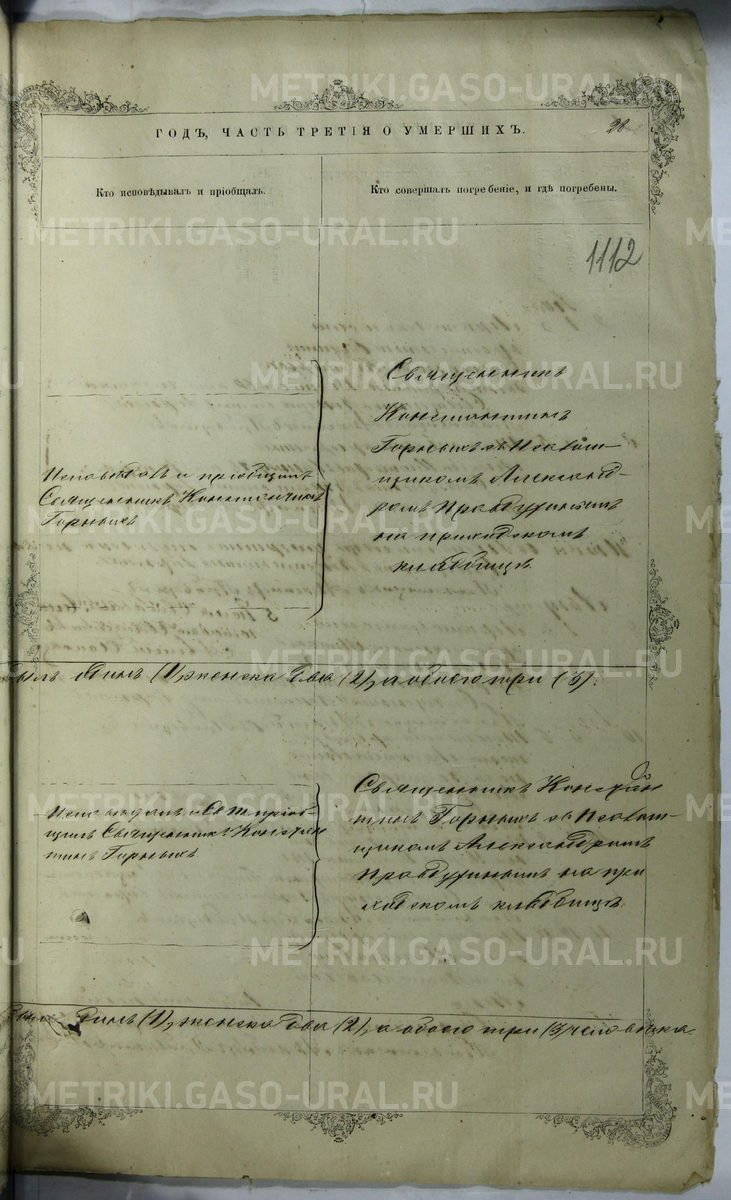 METRIKI.GASO-URAL.RU
ГОДЪ, ЧАСТЬ ТРЕТІЯ О УМЕРШИХЪ.
28
Кто исповѣдывалъ и пріобщалъ.
Кто совершалъ погребеніе, и гдѣ погребены.
1112
Исповѣдовъ и пріобщилъ
Священникъ Константинъ
Горныхъ
Священникъ
Константинъ
Горныхъ съ Псаломщикомъ
Александромъ
Правдухинымъ
на приходскомъ
кладбищѣ
одинъ (1), женска два (2), а обоего три (3).
и Св. Т. пріобщилъ
Священникъ Константинъ
Горныхъ
Священникъ Константинъ
Горныхъ съ Псаломщикомъ
Александромъ
на приходскомъ
кладбищѣ
(1), женска два (2), а обоего три (3) человѣка